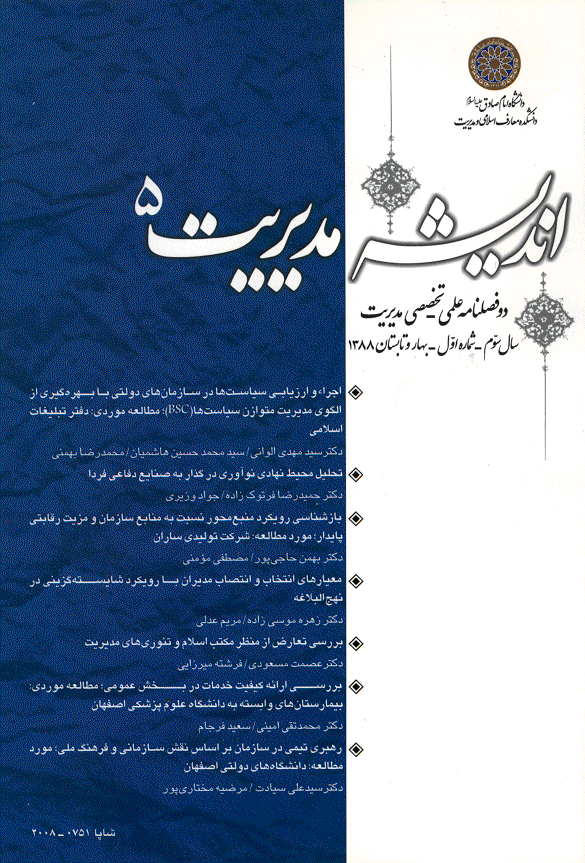 دانشگاه امام صادق علیه‌السلام
دانشکده معارف اسلامی و مدیریت
اندیشه مدیریت ۵
دو فصلنامه علمی تخصصی مدیریت
سال سوّم - شماره اوّل - بهار و تابستان ۱۳۸۸
اجراء و ارزیابی سیاست‌ها در سازمان‌های دولتی با بهره‌گیری از
الگوی مدیریت متوازن سیاست‌ها(BSC)؛ مطالعه موردی: دفتر تبلیغات
اسلامی
دکتر سید مهدی الوانی / سید محمد حسین هاشمیان / محمدرضا بهمنی
تحلیل محیط نهادی نوآوری در گذار به صنایع دفاعی فردا
دکتر حمیدرضا فرتوک زاده / جواد وزیری
بازشناسی رویکرد منبع‌محور نسبت به منابع سازمان و مزیت رقابتی
پایدار؛ مورد مطالعه: شرکت تولیدی ساران
دکتر بهمن حاجی‌پور / مصطفی مؤمنی
معیارهای انتخاب و انتصاب مدیران با رویکرد شایسته‌گزینی در
نهج‌البلاغه
دکتر زهره موسی زاده / مریم عدلی
بررسی تعارض از منظر مکتب اسلام و تئوری‌های مدیریت
دکتر عصمت مسعودی / فرشته میرزایی
بررسی ارائه کیفیت خدمات در بخش عمومی؛ مطالعه موردی:
بیمارستان‌های وابسته به دانشگاه علوم پزشکی اصفهان
دکتر محمدتقی امینی / سعید فرجام
رهبری تیمی در سازمان بر اساس نقش سازمانی و فرهنگ ملی؛ مورد
مطالعه: دانشگاه‌های دولتی اصفهان
دکتر سیدعلی سیادت / مرضیه مختاری‌پور
شاپا ۰۷۵۱ - ۲۰۰۸